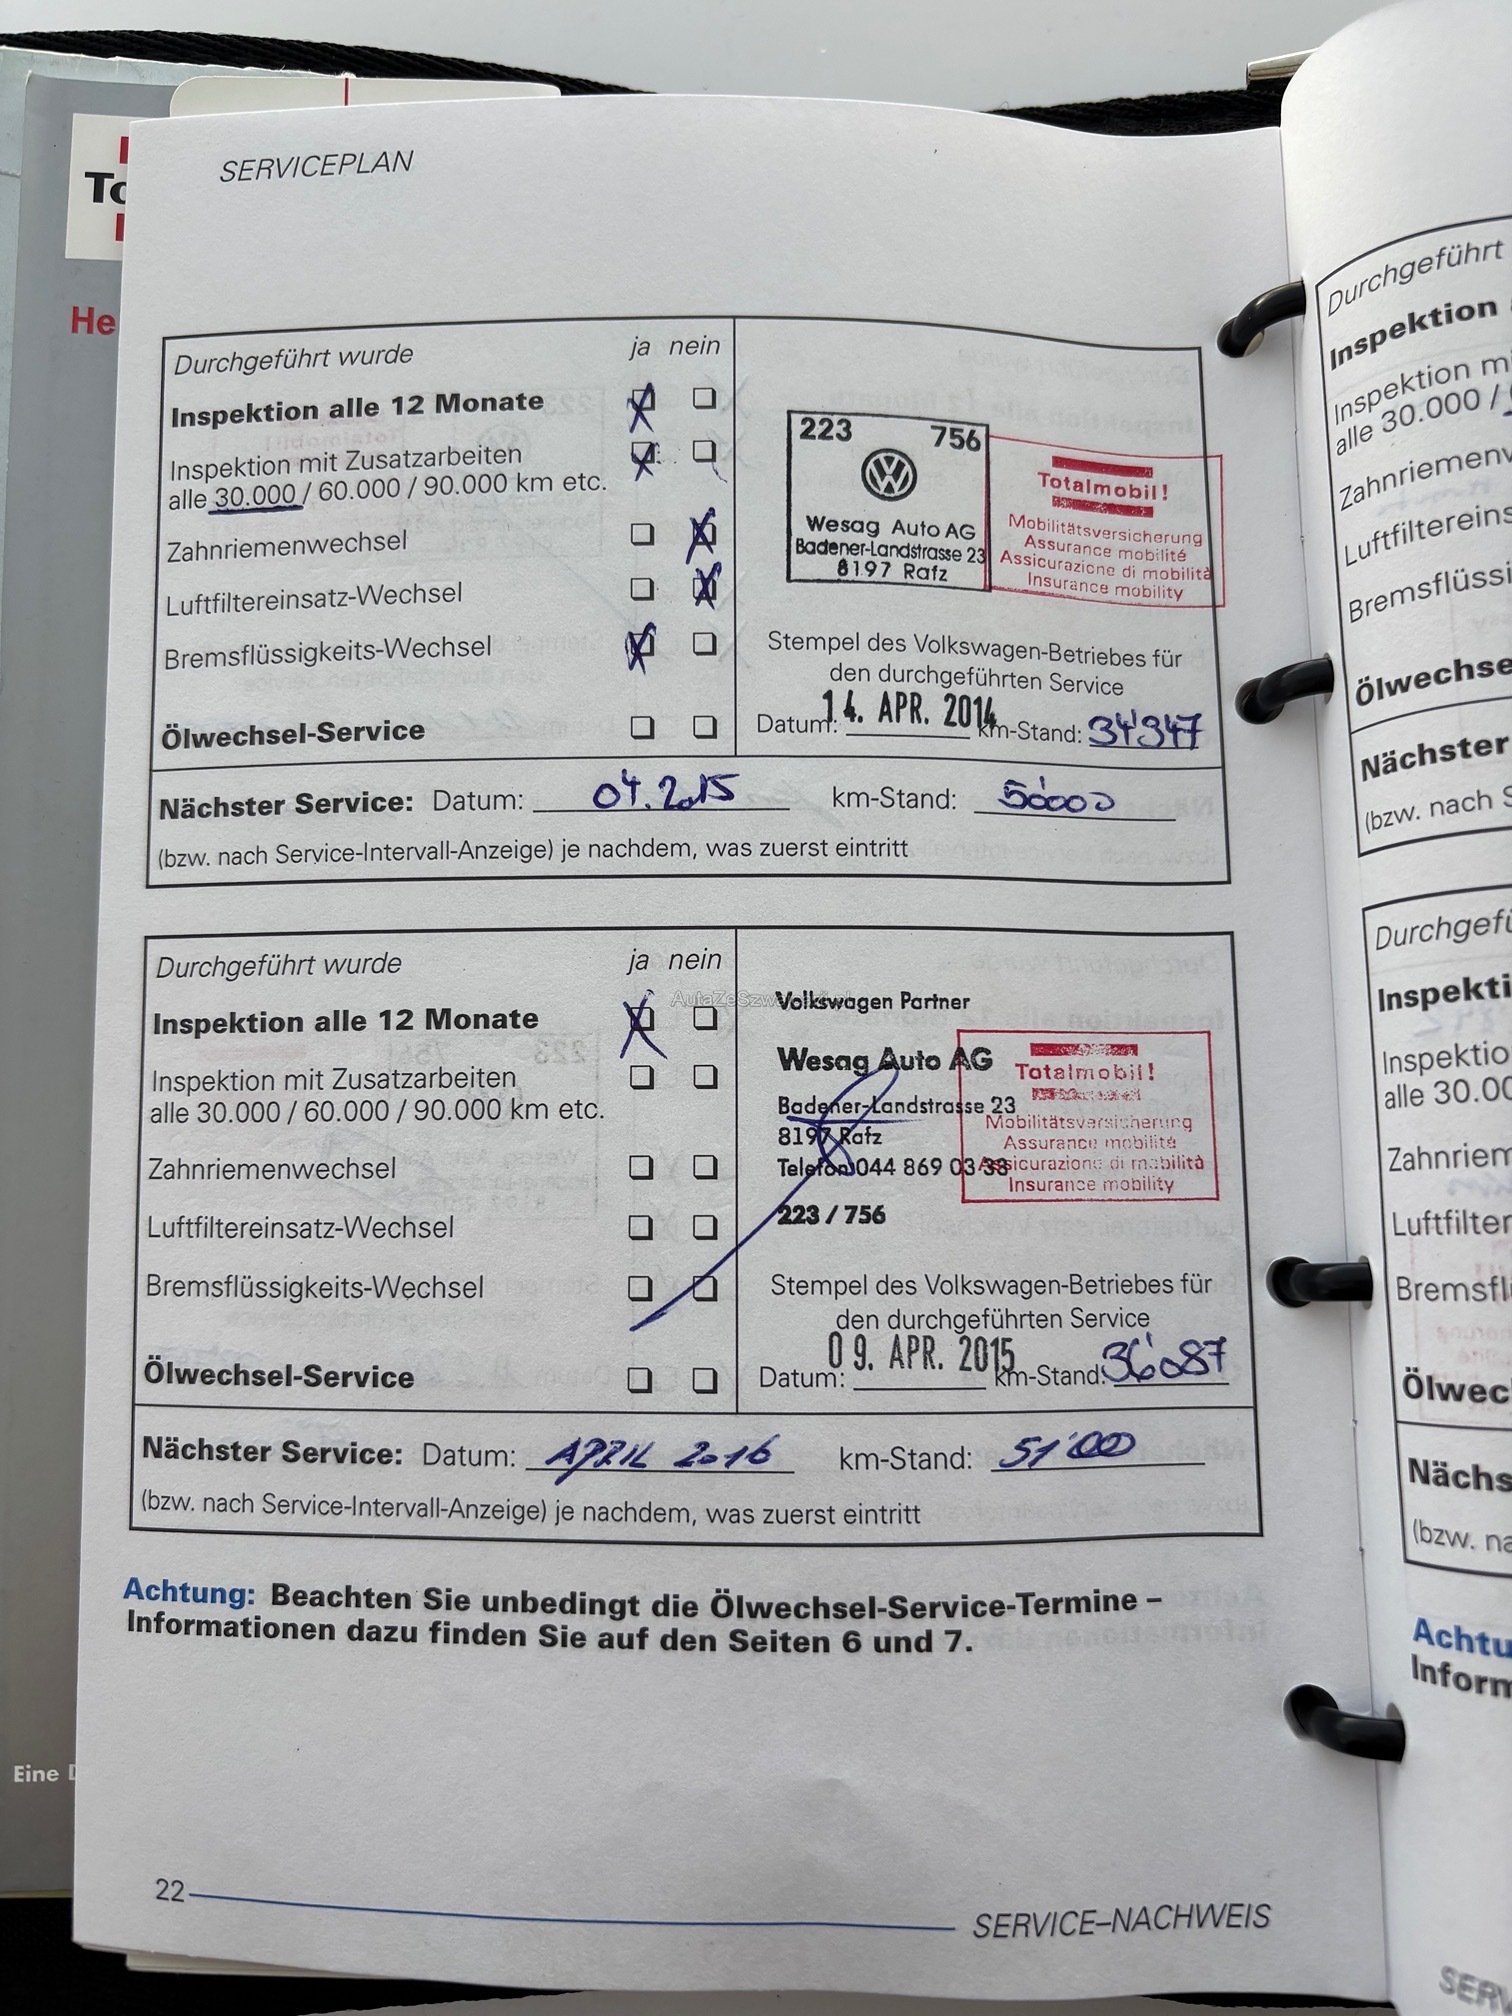 SERVICEPLAN
To
He
Durchgeführt wurde ja nein
Inspektion alle 12 Monate
Inspektion mit Zusatzarbeiten
alle 30.000 / 60.000 / 90.000 km etc.
Zahnriemenwechsel
Luftfiltereinsatz-Wechsel
Bremsflüssigkeits-Wechsel
Ölwechsel-Service
223 756
Wesag Auto AG
Badener-Landstrasse 23
8197 Rafz
Totalmobil!
Mobilitätsversicherung
Assurance mobilité
Assicurazione di mobilità
Insurance mobility
Stempel des Volkswagen-Betriebes für
den durchgeführten Service
Datum: 14. APR. 2014 km-Stand: 34'347
Nächster Service: Datum: 04.2015 km-Stand: 50'000
(bzw. nach Service-Intervall-Anzeige) je nachdem, was zuerst eintritt
Durchgeführt wurde ja nein
Inspektion alle 12 Monate
Inspektion mit Zusatzarbeiten
alle 30.000 / 60.000 / 90.000 km etc.
Zahnriemenwechsel
Luftfiltereinsatz-Wechsel
Bremsflüssigkeits-Wechsel
Ölwechsel-Service
Volkswagen Partner
Wesag Auto AG
Badener-Landstrasse 23
8197 Rafz
Telefon 044 869 03 38
223 / 756
Totalmobil!
Mobilitätsversicherung
Assurance mobilité
Assicurazione di mobilità
Insurance mobility
Stempel des Volkswagen-Betriebes für
den durchgeführten Service
Datum: 09. APR. 2015 km-Stand: 36'087
Nächster Service: Datum: APRIL 2016 km-Stand: 51'000
(bzw. nach Service-Intervall-Anzeige) je nachdem, was zuerst eintritt
Achtung: Beachten Sie unbedingt die Ölwechsel-Service-Termine –
Informationen dazu finden Sie auf den Seiten 6 und 7.
22 SERVICE–NACHWEIS
Eine
Durchgeführt
Inspektion
Inspektion m
alle 30.000 /
Zahnriemenw
Luftfiltereins
Bremsflüssi
Ölwechse
Nächster
(bzw. nach S
Durchgefü
Inspekti
Inspektio
alle 30.00
Zahnriem
Luftfilter
Bremsfl
Ölwec
Nächs
(bzw. na
Achtu
Inform
SERV